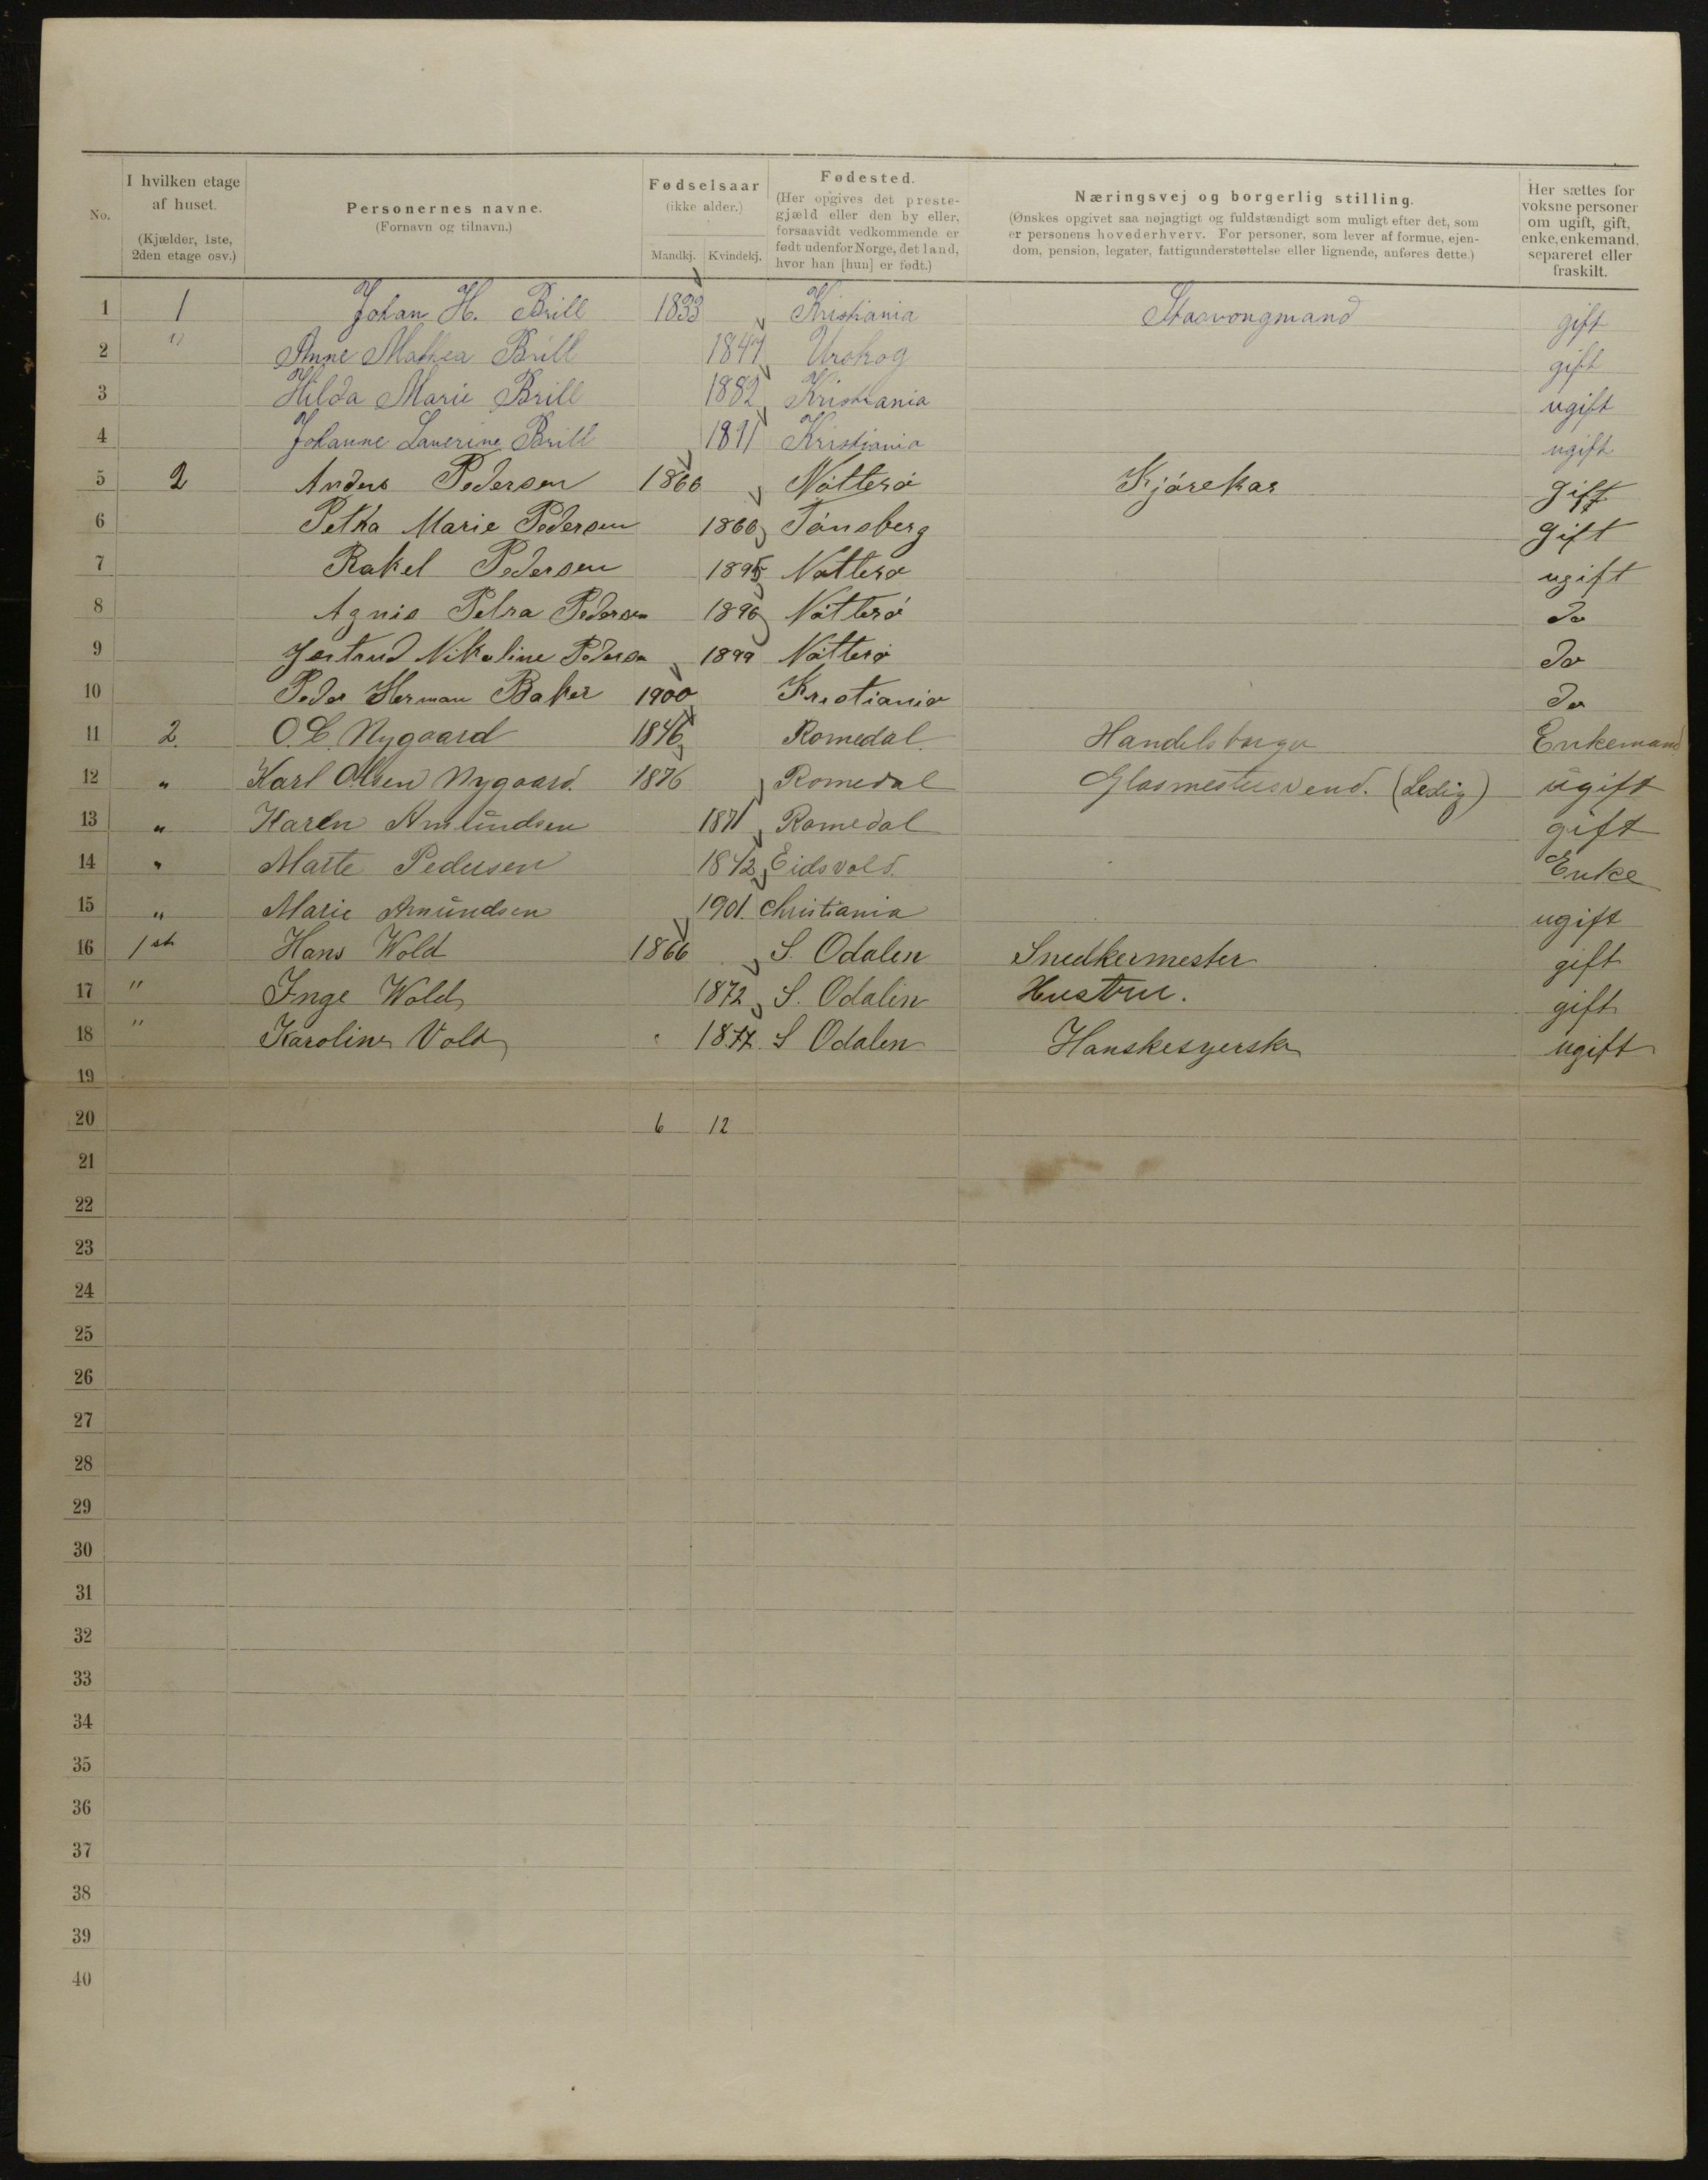 No.
I hvilken etage af huset.
(Kjælder, 1ste, 2den etage osv.)
Personernes navne.
(Fornavn og tilnavn.)
Fødselsaar
(ikke alder.)
Mandkj. Kvindekj.
Fødested.
(Her opgives det preste-
gjæld eller den by eller,
forsaavidt vedkommende er
født udenfor Norge, det land,
hvor han [hun] er født.)
Næringsvej og borgerlig stilling.
(Ønskes opgivet saa nøjagtigt og fuldstændigt som muligt efter det, som
er personens hovederhverv. For personer, som lever af formue, ejen-
dom, pension, legater, fattigunderstøttelse eller lignende, anføres dette.)
Her sættes for
voksne personer
om ugift, gift,
enke, enkemand,
separeret eller
fraskilt.
1 1 Johan H. Brill 1833 Kristiania gift
2 " Anne Mathea Brill Urskog gift
3 Hilda Marie Brill 1882 Kristiania ugift
4 Johanne Laverine Brill Kristiania ugift
5 2 Anders Pedersen 1866 Nötterö Kjörekar gift
6 Petra Marie Pedersen 1866 Tönsberg gift
7 Rakel Pedersen 1895 Nötterö ugift
8 Agnis Petra Pedersen 1896 Nötterö do
9 Jertrud Nikoline Pedersen 1899 Nötterö do
10 Peder Herman Baker 1900 Kristiania do
11 2. Nygaard 1846 Romedal. Handelsborger Enkemand
12 " Karl Olsen Nygaard. 1876 Romedal Glasmestersvend. (Ledig) ugift
13 " Karen Amundsen 1871 Romedal gift
14 " Marte Pedersen 1842 Eidsvold. Enke
15 " Marie Amundsen 1901. Christiania ugift
16 1st Hans Wold 1866 S. Odalen Snedkermester gift
17 " Inge Wold 1872 S. Odalen Hustru. gift
18 " Karoline Vold 1877 S Odalen Hanskesyerske ugift
19
20 6 12
21
22
23
24
25
26
27
28
29
30
31
32
33
34
35
36
37
38
39
40